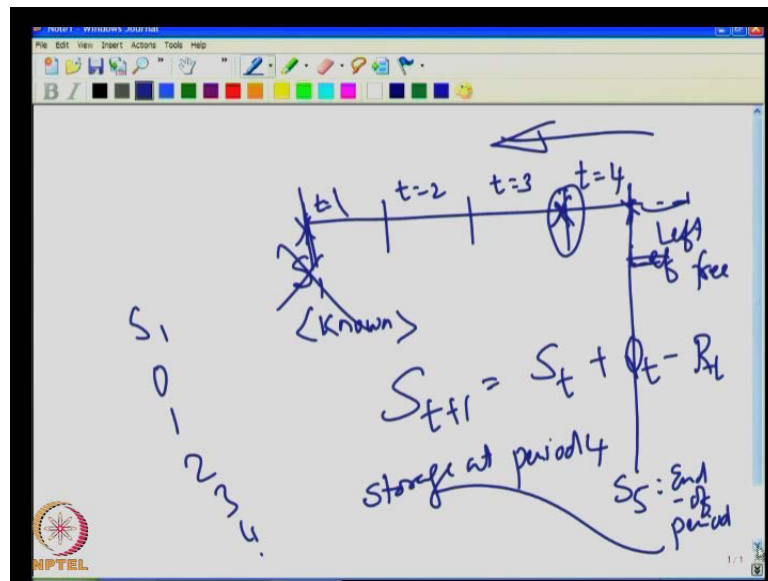 Note1 - Windows Journal
File Edit View Insert Actions Tools Help
B I
t=1 t=2 t=3 t=4
Left
free
S1
<Known>
S1
0
1
2
3
4
St+1 = St + Qt - Rt
storage at period 4
S5 : End
- of
period
NPTEL
1/1